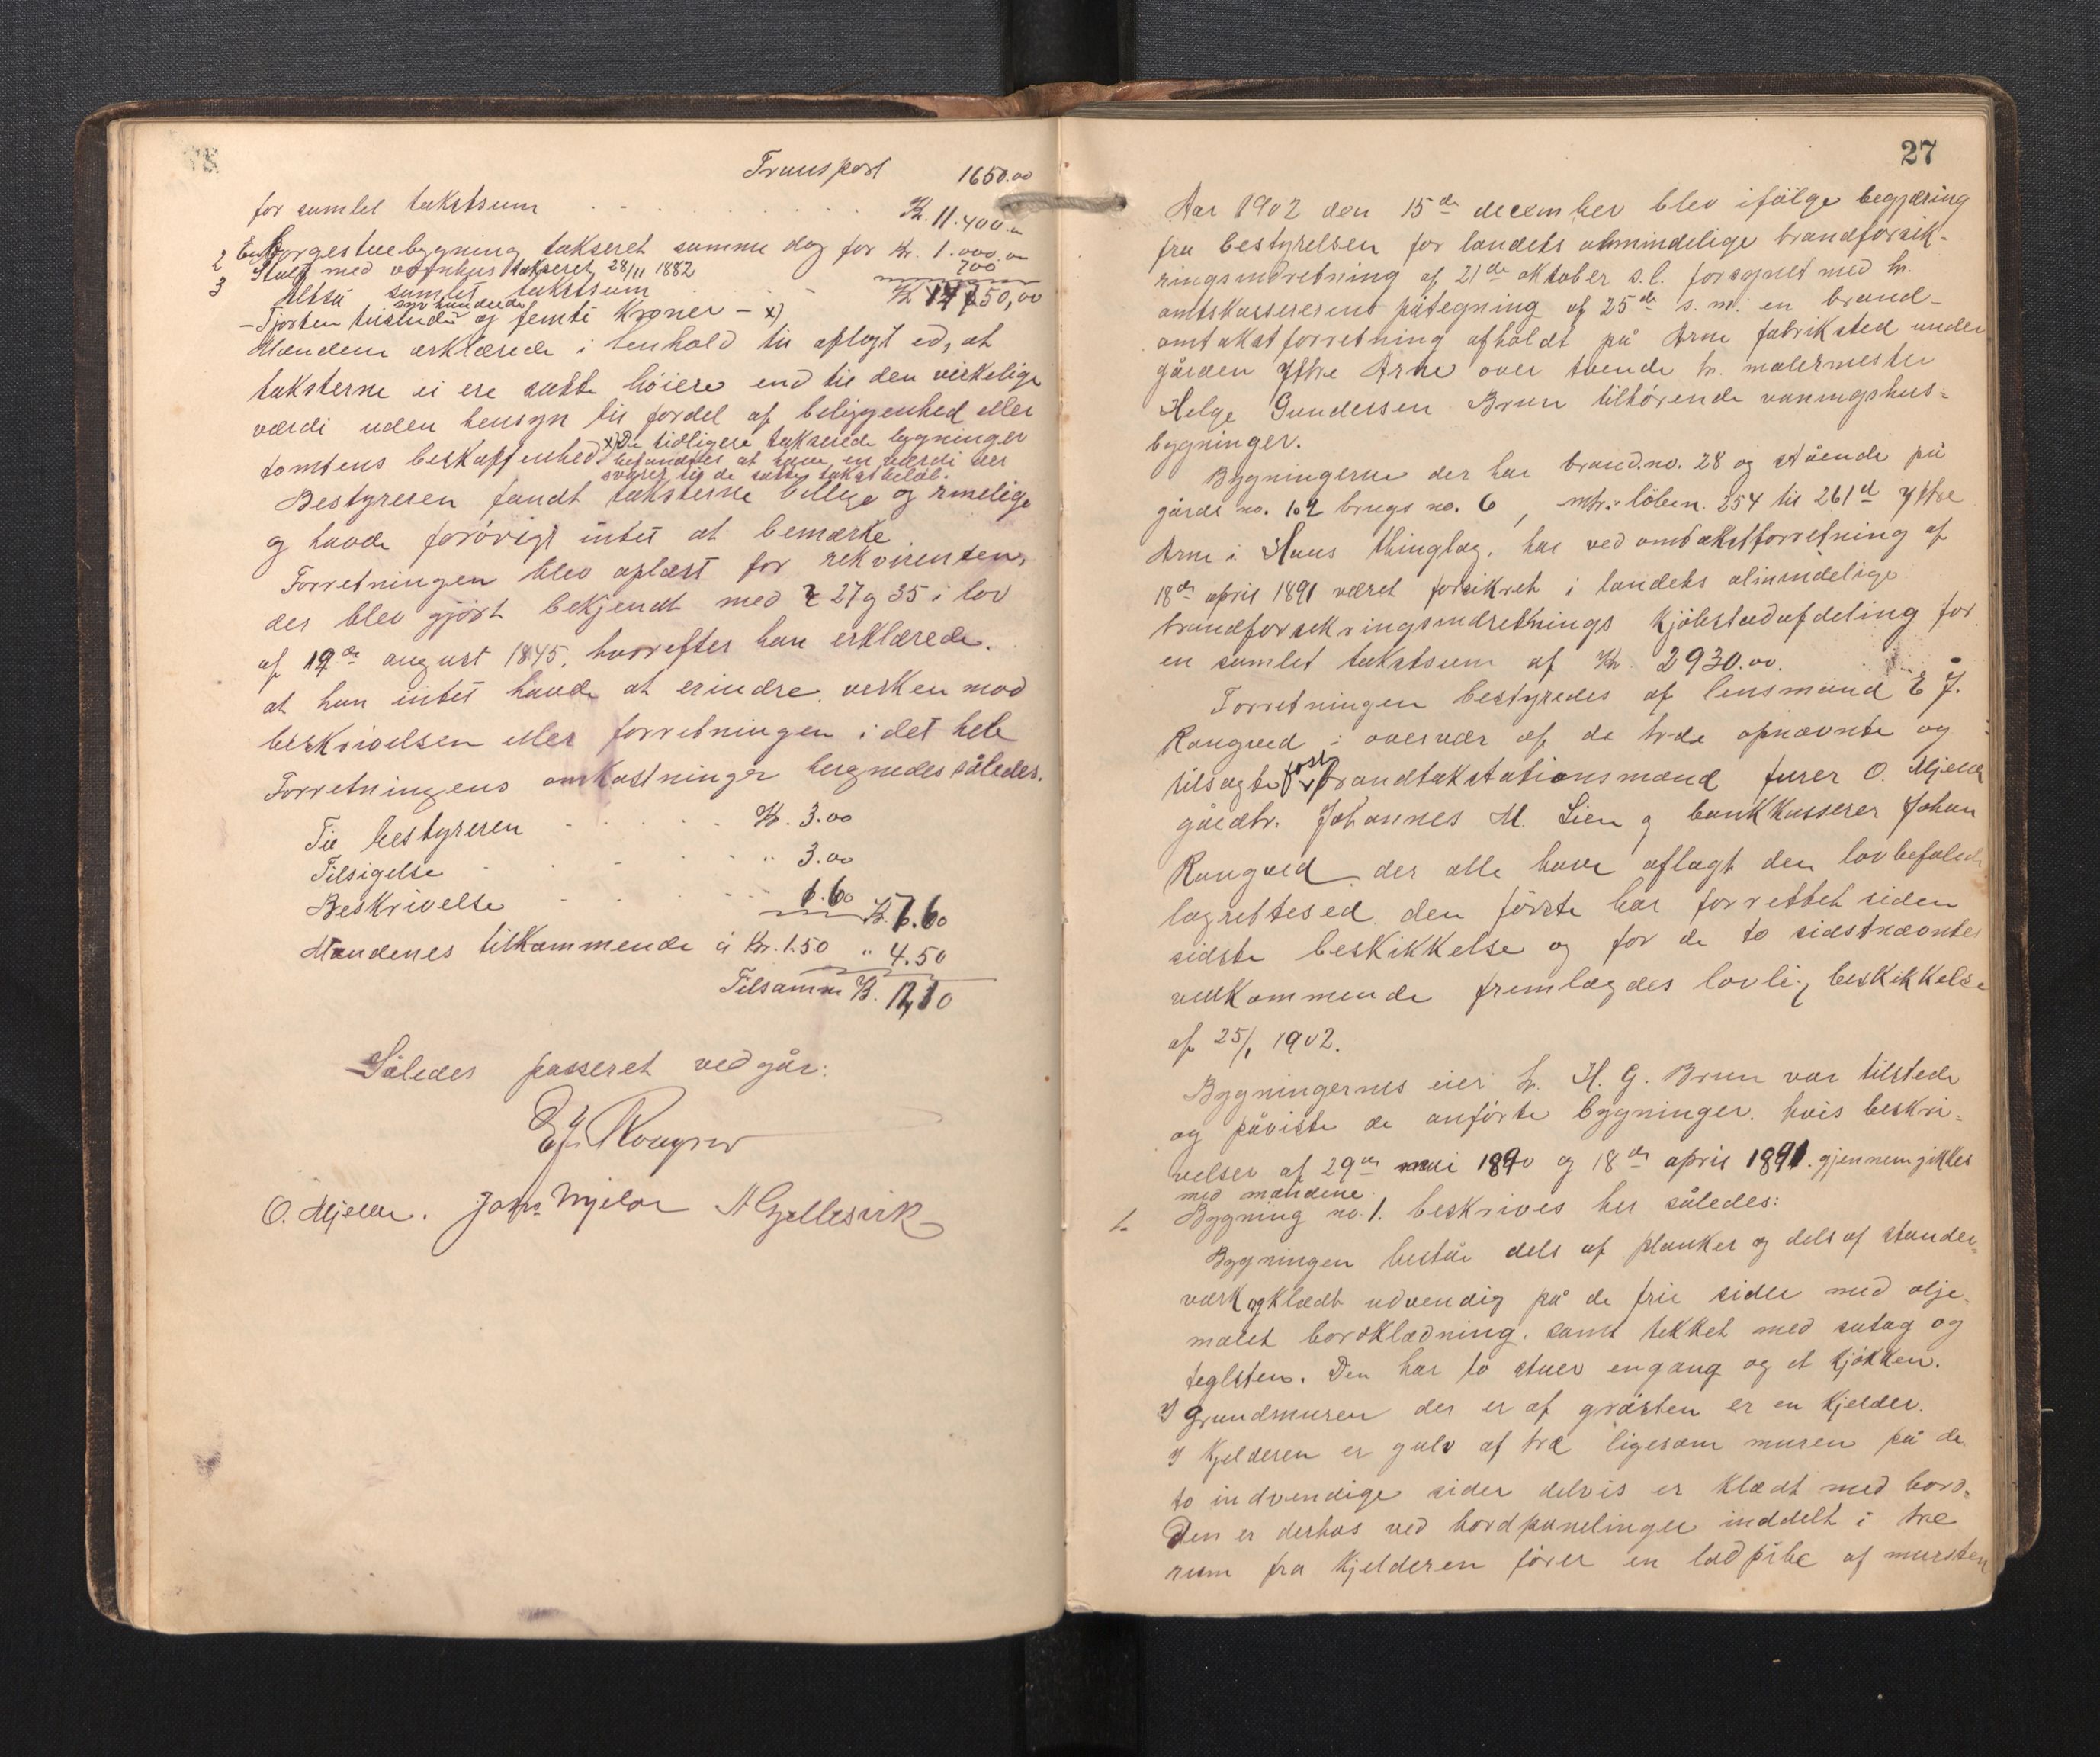 Transport 1650.00
for samlet takstsum Kr. 11.400.00
2 En Borgestuebygning takseret samme dag for Kr. 1.000.00
3 Stald med vognhus takseret 28/11 1882 700
Altså samlet takstsum Kr 14750,00
– Fjorten tusinde syv hundrede og femti Kroner – x)
Mændene erklærede i henhold til aflagt ed, at
taksterne ei ere satte høiere end til den virkelige
værdi uden hensyn til fordel af beliggenhed eller
tomtens beskaffenhed. x) De tidligere takserede bygninger
befandtes at have en værdi der
svarer til de satte takstbeløb.
Bestyreren fandt taksterne billige og rimelige
og havde forøvrigt intet at bemærke
Forretningen blev oplæst for rekvirenten,
der blev gjort bekjendt med § 27 og 35 i lov
af 19de august 1845, hvorefter han erklærede.
at han intet havde at erindre verken mod
beskrivelsen eller forretningen i det hele
Forretningens omkostninger beregnedes således.
Til bestyreren Kr. 3.00
Tilsigelse " 3.00
Beskrivelse 1.60 Kr. 7.60
Mændenes tilkommende á Kr. 1.50 " 4.50
Tilsamm Kr. 12,10
Således passeret vedgår:
O. Mjelde. Johs Mjelde
27
Aar 1902 den 15de december blev ifølge begjæring
fra bestyrelsen for landets almindelige brandforsik-
ringsindretning af 21de oktober s.l. forsynet med hr.
amtskassererens påtegning af 25de s.m. en brand-
omtakstforretning afholdt på Arne fabriksted under
gården Ytre Arne over tvende hr. malermester
Helge Gundersen Brun tilhørende våningshus-
bygninger.
Bygningerne der har brand.no. 28 og stående på
gårds no. 102 brugs no. 6, mtr. løben. 254 til 261d Ytre
Arne i Haus thinglag, har ved omtakstforretning af
18de april 1891 været forsikret i landets almindelige
brandforsikringsindretnings kjøbstadafdeling for
en samlet takstsum af Kr. 2930.00.
Forretningen bestyredes af lensmand E J.
Rongved i overvær af de tvde opnævnte og
tilsagte faste brandtakstationsmænd furer O. Mjelde
gårdbr. Johannes M. Lien og bankkasserer Johan
Rongved der alle have aflagt den lovbefalede
lagrettesed. den første har forrettet siden
sidste beskikkelse og for de to sidstnævntes
vedkommende fremlagdes lovlig beskikkelse
af 25/1 1902.
Bygningernes eier hr. H. G. Brun var tilstede
og påviste de anførte bygninger. hvis beskri-
velser af 29de mai 1890 og 18de april 1891. gjennemgikkes
med mændene.
1. Bygning no. 1. beskrives her således:
Bygningen består dels af planker og dels af stander-
værk og klædt udvendig på de frie sider med olje-
malet bordklædning. samt tekket med sutag og
teglsten. Den har to stuer en gang og et kjøkken.
I grundmuren der er af gråsten er en kjelder.
I kjelderen er gulv af træ ligesom muren på de
to indvendige sider delvis er klædt med bord.
Den er derhos ved bordpanelinger inddelt i tre
rum fra kjelderen fører en lodpibe af mursten